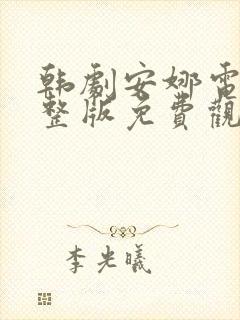 韩劇安娜電
整版免費觀
李光曦